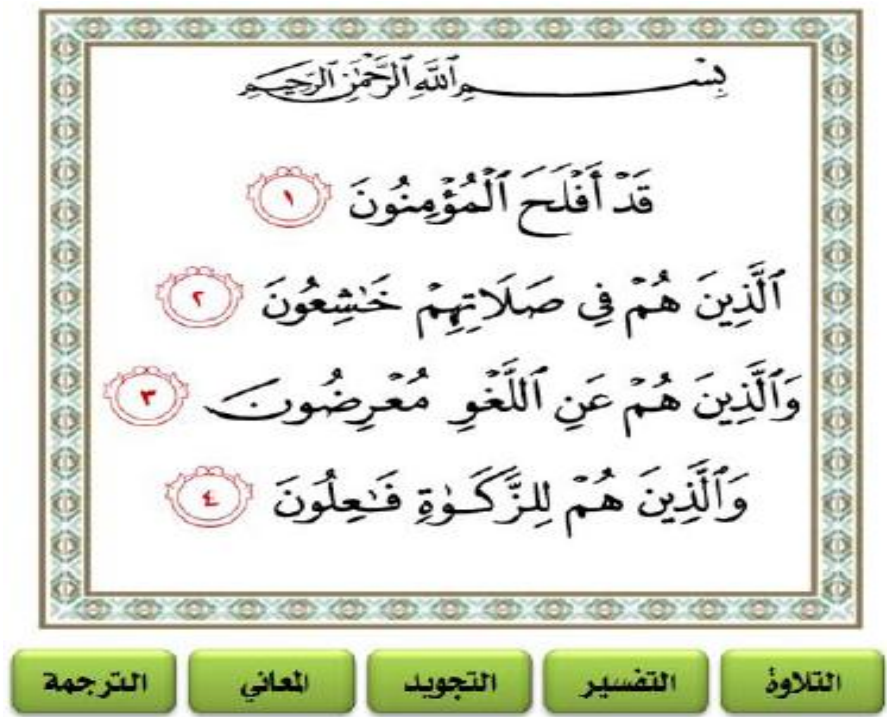 بِسْمِ ٱللَّهِ ٱلرَّحْمَٰنِ ٱلرَّحِيمِ
قَدْ أَفْلَحَ ٱلْمُؤْمِنُونَ ١
ٱلَّذِينَ هُمْ فِي صَلَاتِهِمْ خَٰشِعُونَ ٢
وَٱلَّذِينَ هُمْ عَنِ ٱللَّغْوِ مُعْرِضُونَ ٣
وَٱلَّذِينَ هُمْ لِلزَّكَوٰةِ فَٰعِلُونَ ٤
التلاوة التفسير التجويد المعاني الترجمة